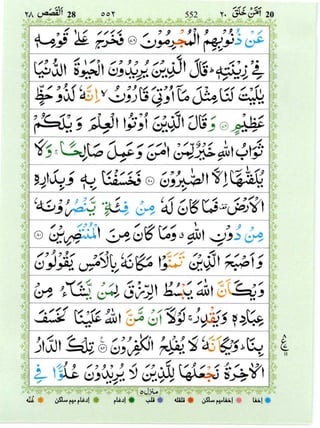 القصص ٢٨ 28 ٥٥٢ 552 امن خلق ٢٠ 20
عَنْ ذُنُوْبِهِمُ الْمُجْرِمُوْنَ ﴿٧٨﴾ فَخَرَجَ عَلٰى قَوْمِهٖ
فِیْ زِیْنَتِهٖ ؕ قَالَ الَّذِیْنَ یُرِیْدُوْنَ الْحَیٰوةَ الدُّنْیَا
یٰلَیْتَ لَنَا مِثْلَ مَاۤ اُوْتِیَ قَارُوْنُ ۙ اِنَّهٗ لَذُوْ حَظٍّ
عَظِیْمٍ ﴿٧٩﴾ وَ قَالَ الَّذِیْنَ اُوْتُوا الْعِلْمَ وَیْلَكُمْ
ثَوَابُ اللّٰهِ خَیْرٌ لِّمَنْ اٰمَنَ وَ عَمِلَ صَالِحًا ۚ وَ لَا
یُلَقّٰىهَاۤ اِلَّا الصّٰبِرُوْنَ ﴿٨٠﴾ فَخَسَفْنَا بِهٖ وَ بِدَارِهِ
الْاَرْضَ ۫ فَمَا كَانَ لَهٗ مِنْ فِئَةٍ یَّنْصُرُوْنَهٗ
مِنْ دُوْنِ اللّٰهِ ٭ وَ مَا كَانَ مِنَ الْمُنْتَصِرِیْنَ ﴿٨١﴾
وَ اَصْبَحَ الَّذِیْنَ تَمَنَّوْا مَكَانَهٗ بِالْاَمْسِ یَقُوْلُوْنَ
وَیْكَاَنَّ اللّٰهَ یَبْسُطُ الرِّزْقَ لِمَنْ یَّشَآءُ مِنْ
عِبَادِهٖ وَ یَقْدِرُ ۚ لَوْلَاۤ اَنْ مَّنَّ اللّٰهُ عَلَیْنَا لَخَسَفَ
بِنَا ؕ وَیْكَاَنَّهٗ لَا یُفْلِحُ الْكٰفِرُوْنَ ﴿٨٢﴾ تِلْكَ الدَّارُ
الْاٰخِرَةُ نَجْعَلُهَا لِلَّذِیْنَ لَا یُرِیْدُوْنَ عُلُوًّا فِی
منزل ٥
إخفا إخفامیم ساكن قلقله قلب إدغام إدغام میم ساكن غنّه